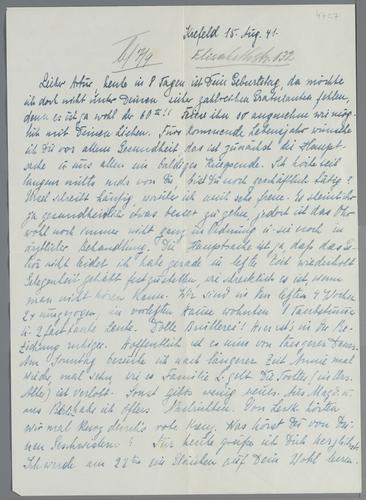 4727
Krefeld 15. Aug. 41.
Elisabethstr. 132
Lieber Artur, heute in 8 Tagen ist Dein Geburtstag, da möchte
ich doch nicht unter Deinen sicher zahlreichen Gratulanten fehlen,
denn es ist ja wohl der 60te!! Feiere ihn so angenehm wie mög-
lich mit Deinen Lieben. Fürs kommende Lebensjahr wünsche
ich Dir vor allem Gesundheit das ist zunächst die Haupt-
sache u. uns allen ein baldiges Kriegsende. Ich hörte seit
langem nichts von Dir, bist Du noch geschäftlich tätig?
schreibt häufig, worüber ich mich sehr freue. Es scheint ihr
ja gesundheitlich etwas besser zu gehen, jedoch ist das Ohr
wohl noch immer nicht ganz in Ordnung u. sie noch in
ärztlicher Behandlung. Die Hauptsache ist ja, dass das Ge-
hör nicht leidet, ich habe gerade in letzter Zeit wiederholt
Gelegenheit gehabt festzustellen, wie schrecklich es ist, wenn
man nicht hören kann. Wir sind in den letzten 4 Wochen
2x umgezogen, im vorletzten Hause wohnten 1 Taubstumme
u. 2 fast taube Leute. Tolle Brüllerei! Hier ist's in der Be-
ziehung ruhiger. Hoffentlich ist es nun von längerer Dauer.
Am Sonntag besuche ich nach längerer Zeit mal
wieder, mal sehn, wie es Familie geht. Die Tochter (
) ist verlobt. Sonst gibts wenig neues. Aus
habe ich öfters Nachrichten. Von hörten
wir mal kurz durchs rote Kreuz. Was hörst Du von Dei-
nen Geschwistern? Für heute grüße ich Dich herzlichst
Ich werde am 22ten ein Gläschen auf Dein Wohl leeren.